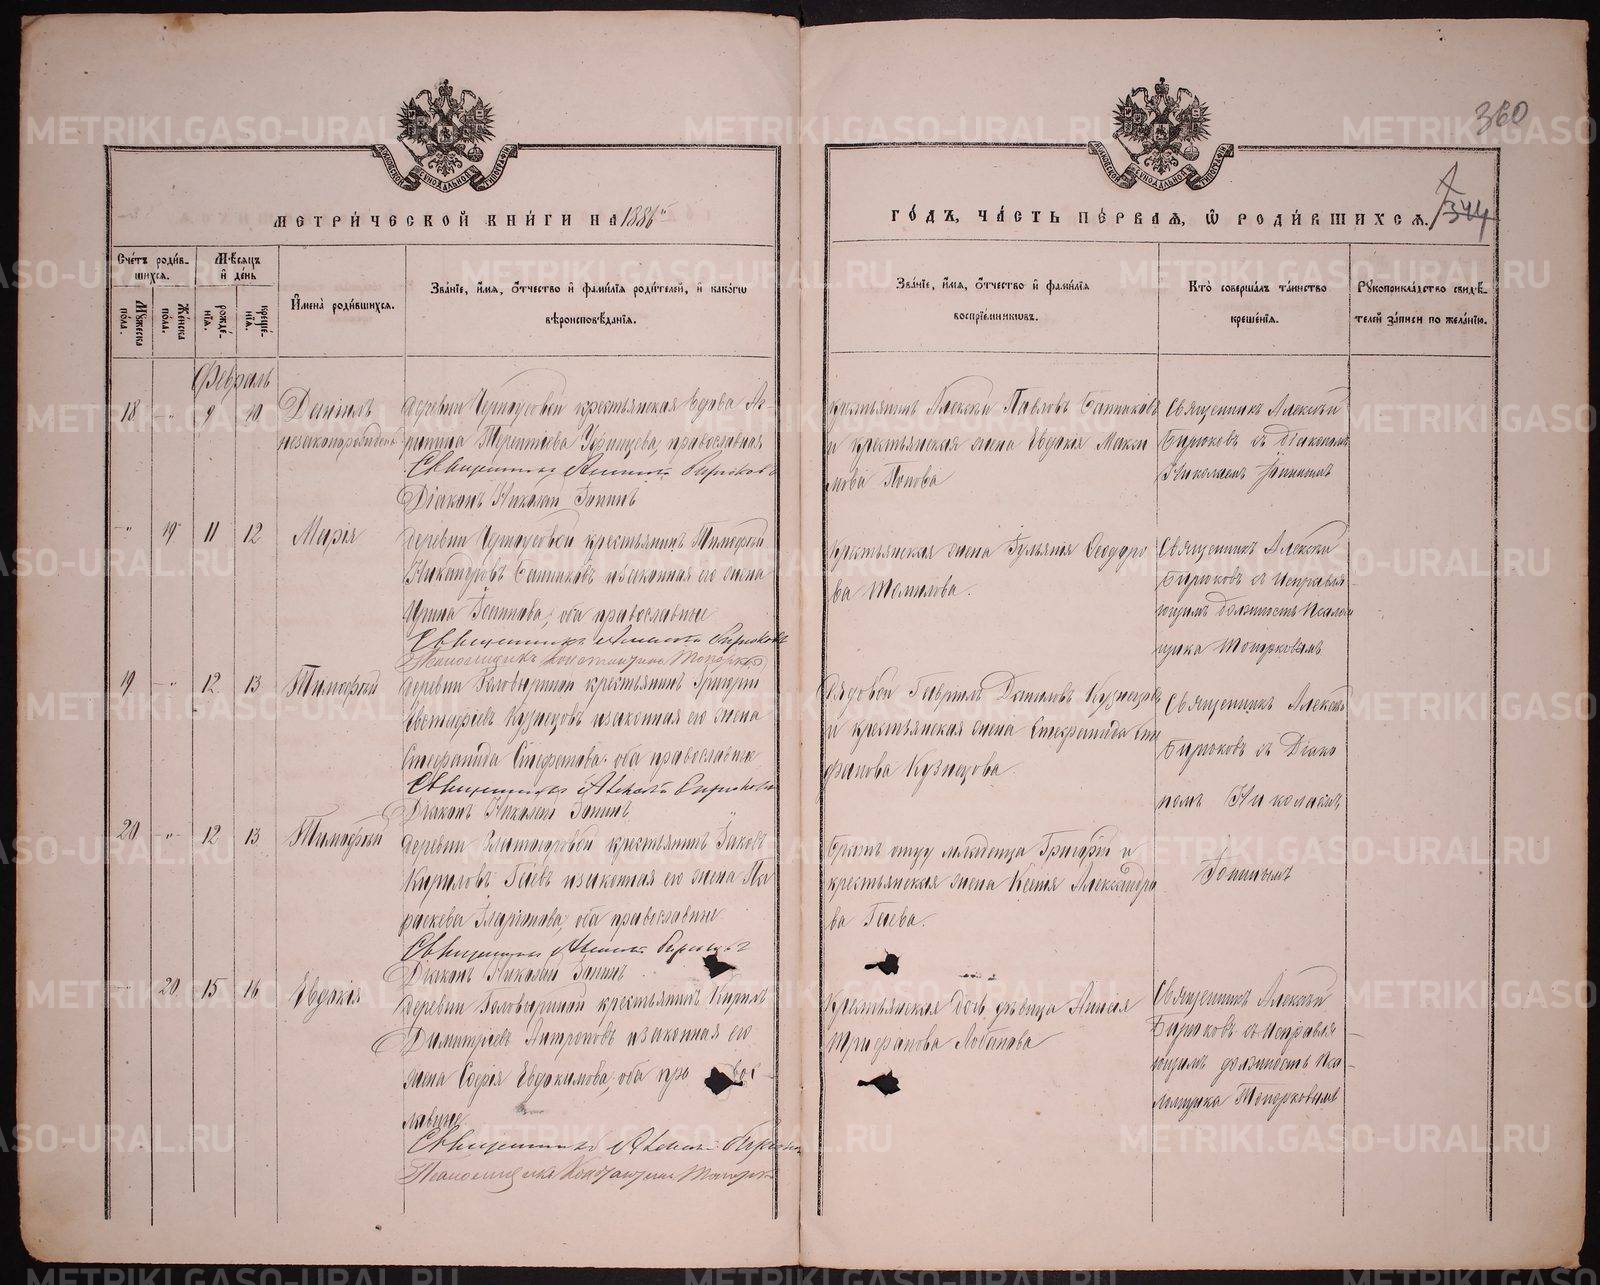 360
344
МЕТРИ́ЧЕСКОЙ КНИ́ГИ НА 1886й
ГО́ДЪ, ЧА́СТЬ ПЕ́РВАЯ, Ѡ РОДИ́ВШИХСЯ.
МОСКОВСКОЙ СѴНОДАЛЬНОЙ ТИПОГРАФІИ
МОСКОВСКОЙ СѴНОДАЛЬНОЙ ТИПОГРАФІИ
Сче́тъ роди́в-
шихся.
Му́жеска по́ла.
Же́нска по́ла.
М҃ѣсяцъ
и҆ де́нь
рожде́-
нїя.
креще́-
нїя.
И҆мена̀ роди́вшихся.
Зва́нїе, и҆́мя, ѻ҆́тчество и҆ фами́лїя роди́телей, и҆ како́гѡ
вѣроисповѣ́данїя.
Зва́нїе, и҆́мя, ѻ҆́тчество и҆ фами́лїя
воспрїе́мникѡвъ.
Кто̀ соверша́лъ та́инство
креще́нїя.
Рꙋкоприкла́дство свидѣ́-
телей за́писи по жела́нїю.
Февраль
18 -"- 9 10 Даніилъ
незаконорожденъ
деревни Черноусовой крестьянская вдова Аг-
рипина Терентіева Уфинцева, православная
Священникъ Алексій Бирюковъ
Діаконъ Николай Іонинъ
Крестьянинъ Алексѣй Павловъ Банниковъ
и крестьянская жена Евдокія Макси
мова Попова
Священникъ Алексѣй
Бирюковъ съ діакономъ
Николаемъ Іонинымъ
-"- 19 11 12 Марія
деревни Черноусовой крестьянинъ Тимофей
Никаноровъ Банниковъ и законная его жена
Ирина Іосипова; оба православные
Священникъ Алексій Бирюковъ
Псаломщикъ Константинъ Топорковъ
Крестьянская жена Іульянія Ѳеодоро
ва Томилова.
Священникъ Алексѣй
Бирюковъ съ исправля-
ющимъ должность псалом
щика Топорковымъ
19 -"- 12 13 Тимофей
деревни Головыриной крестьянинъ Григорій
Евстафіевъ Кузнецовъ и законная его жена
Стефанида Стефанова; оба православные
Священникъ Алексѣй Бирюковъ
Діаконъ Николай Іонинъ
Рядовой Гавриилъ Даниловъ Кузнецовъ
и крестьянская жена Стефанида Сте
фанова Кузнецова.
Священникъ Алексѣй
Бирюковъ съ Діако
номъ Николаемъ
Іонинымъ
20 -"- 12 13 Тимофей
деревни Златогоровой крестьянинъ Іаковъ
Кириловъ Гаевъ и законная его жена Па
раскева Иларіонова; оба православные
Священникъ Алексій Бирюковъ
Діаконъ Николай Іонинъ
Братъ отцу младенца Григорій и
крестьянская жена Ксенія Александро
ва Гаева.
20 15 16 Евдокія
деревни Головыриной крестьянинъ Кирилъ
Димитріевъ Антроповъ и законная его
жена Софія Евдокимова; оба пра вос-
лавные
Священникъ Алексѣй Бирюковъ
Псаломщикъ Константинъ Топорковъ
Крестьянская дочь дѣвица Анисія
Трифанова Лобанова
Священникъ Алексѣй
Бирюковъ съ исправля-
ющимъ должность пса
ломщика Топорковымъ
METRIKI.GASO-URAL.RU